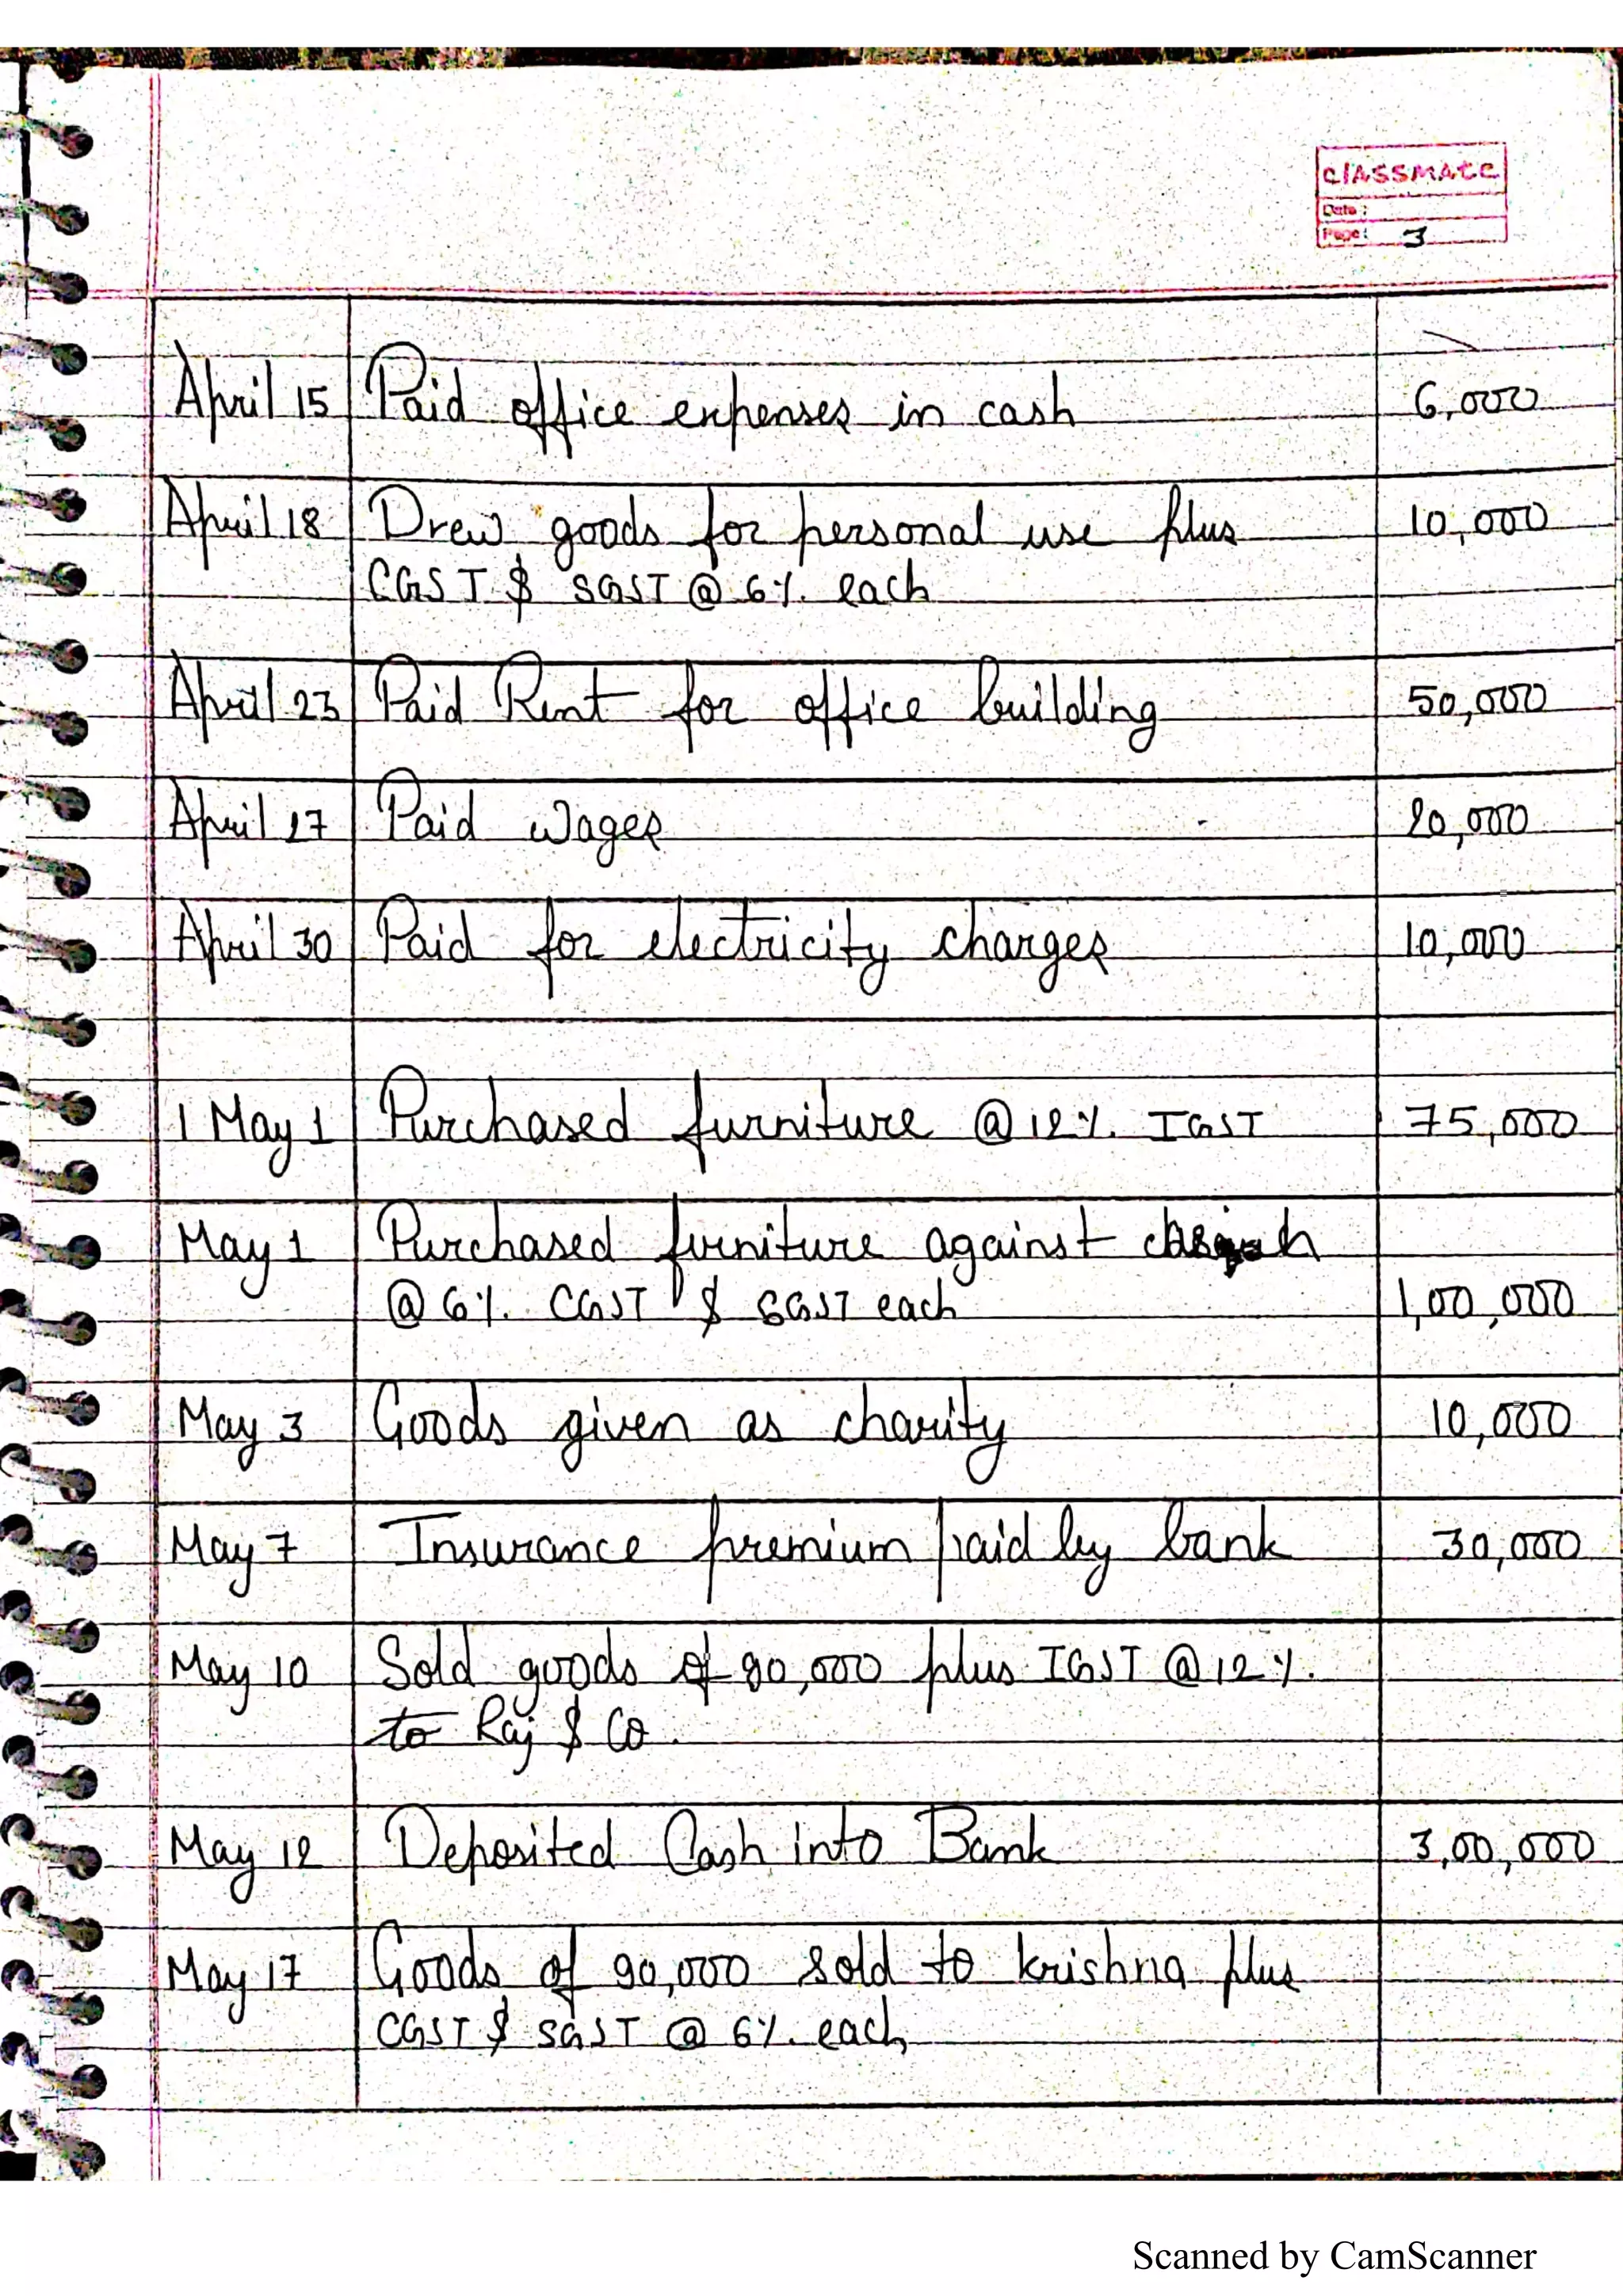 classmate
Date :
Page : 3
April 15 Paid office expenses in cash 6,000
April 18 Drew goods for personal use plus 10,000
CGST & SGST @ 6%. each
April 23 Paid Rent for office building 50,000
April 27 Paid wages 20,000
April 30 Paid for electricity charges 10,000
1 May 1 Purchased furniture @ 12%. IGST 75,000
May 1 Purchased furniture against
@ 6%. CGST & SGST each 1,00,000
May 3 Goods given as charity 10,000
May 7 Insurance premium paid by bank 30,000
May 10 Sold goods of 80,000 plus IGST @ 12%.
to Raj & Co.
May 12 Deposited Cash into Bank 3,00,000
May 17 Goods of 90,000 sold to krishna plus
CGST & SGST @ 6%. each
Scanned by CamScanner